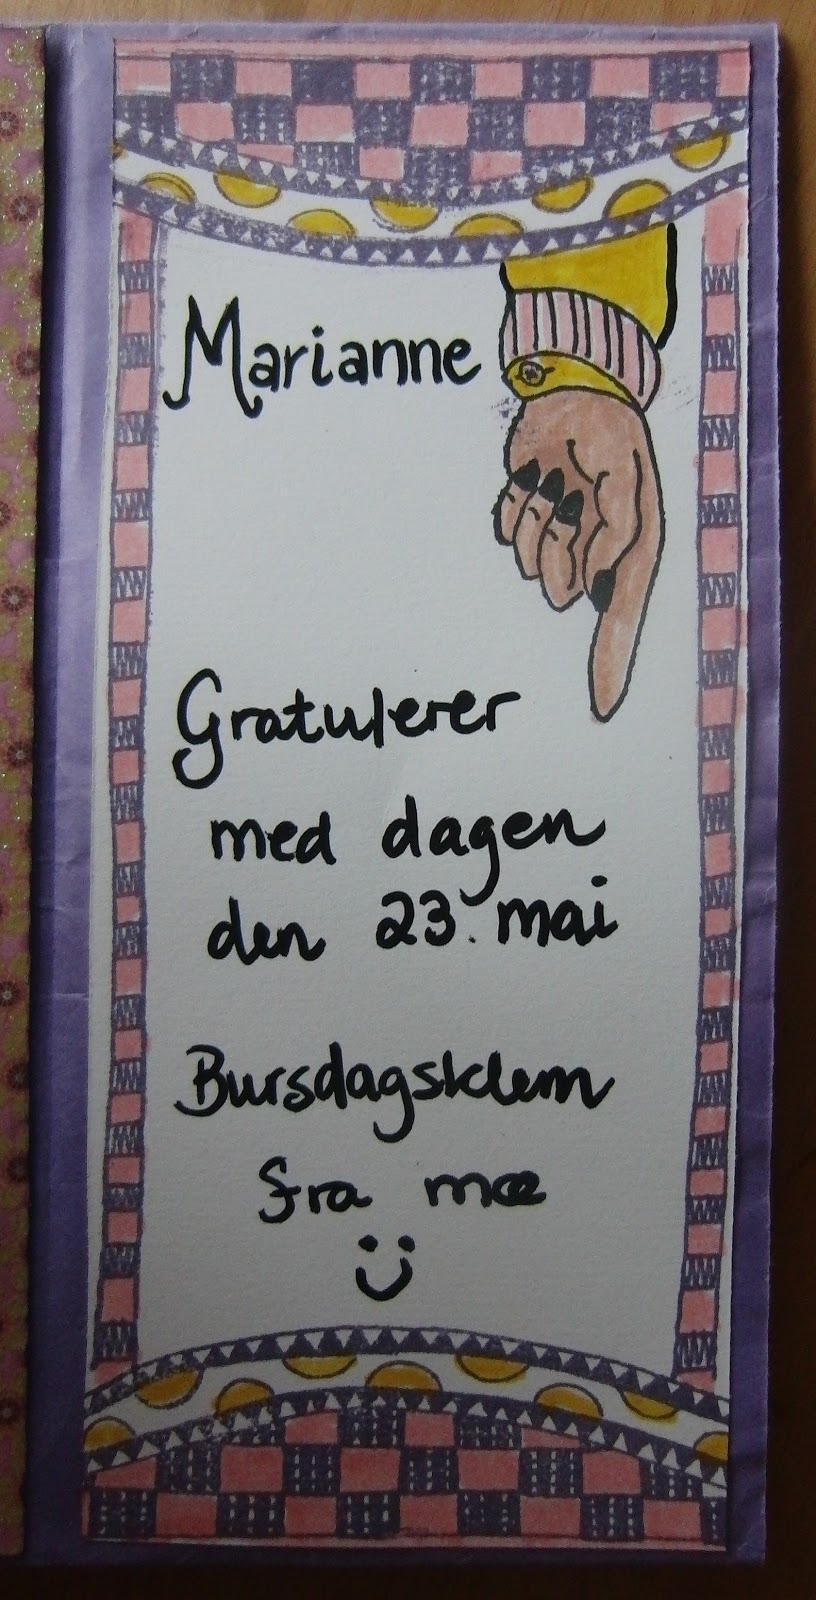 Marianne
Gratulerer
med dagen
den 23. mai
Bursdagsklem
fra mæ